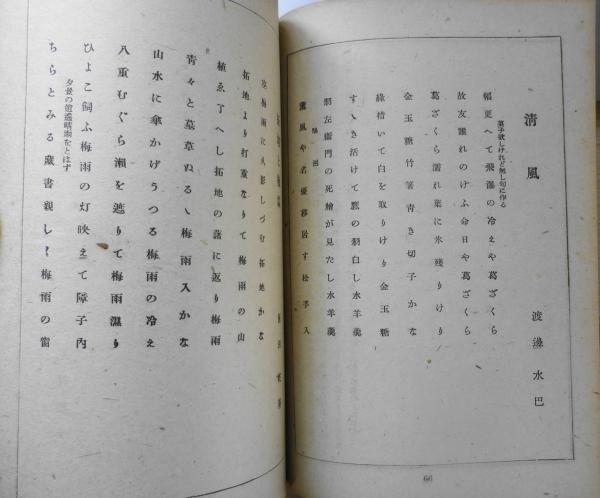 清風
渡邊水巴
菓子欲しけれど無し句に作る
幅更へて飛瀑の冷えや葛ざくら
故友誰れのけふ命日や葛ざくら
葛ざくら濡れ葉に氷殘りけり
金玉糖竹箸靑き切子かな
緣拭いて白を取りけり金玉糖
すゝき活けて鷹の羽白し水羊羹
羽左衞門の死繪が見たし水羊羹
薰風や名優移居す松手入
66
梅雨に人影しづむ拓地かな
拓地より打重なりて梅雨の山
植ゑ了へし拓地の藷に返り梅雨
靑々と墓草ぬるゝ梅雨入かな
山水に傘かげうつる梅雨の冷え
八重むぐら瀨を遮りて梅雨濕り
ひよこ飼ふ梅雨の灯映えて障子內
夕景の逍遙晴雨をとはず
ちらとみる藏書親し梅雨の窗